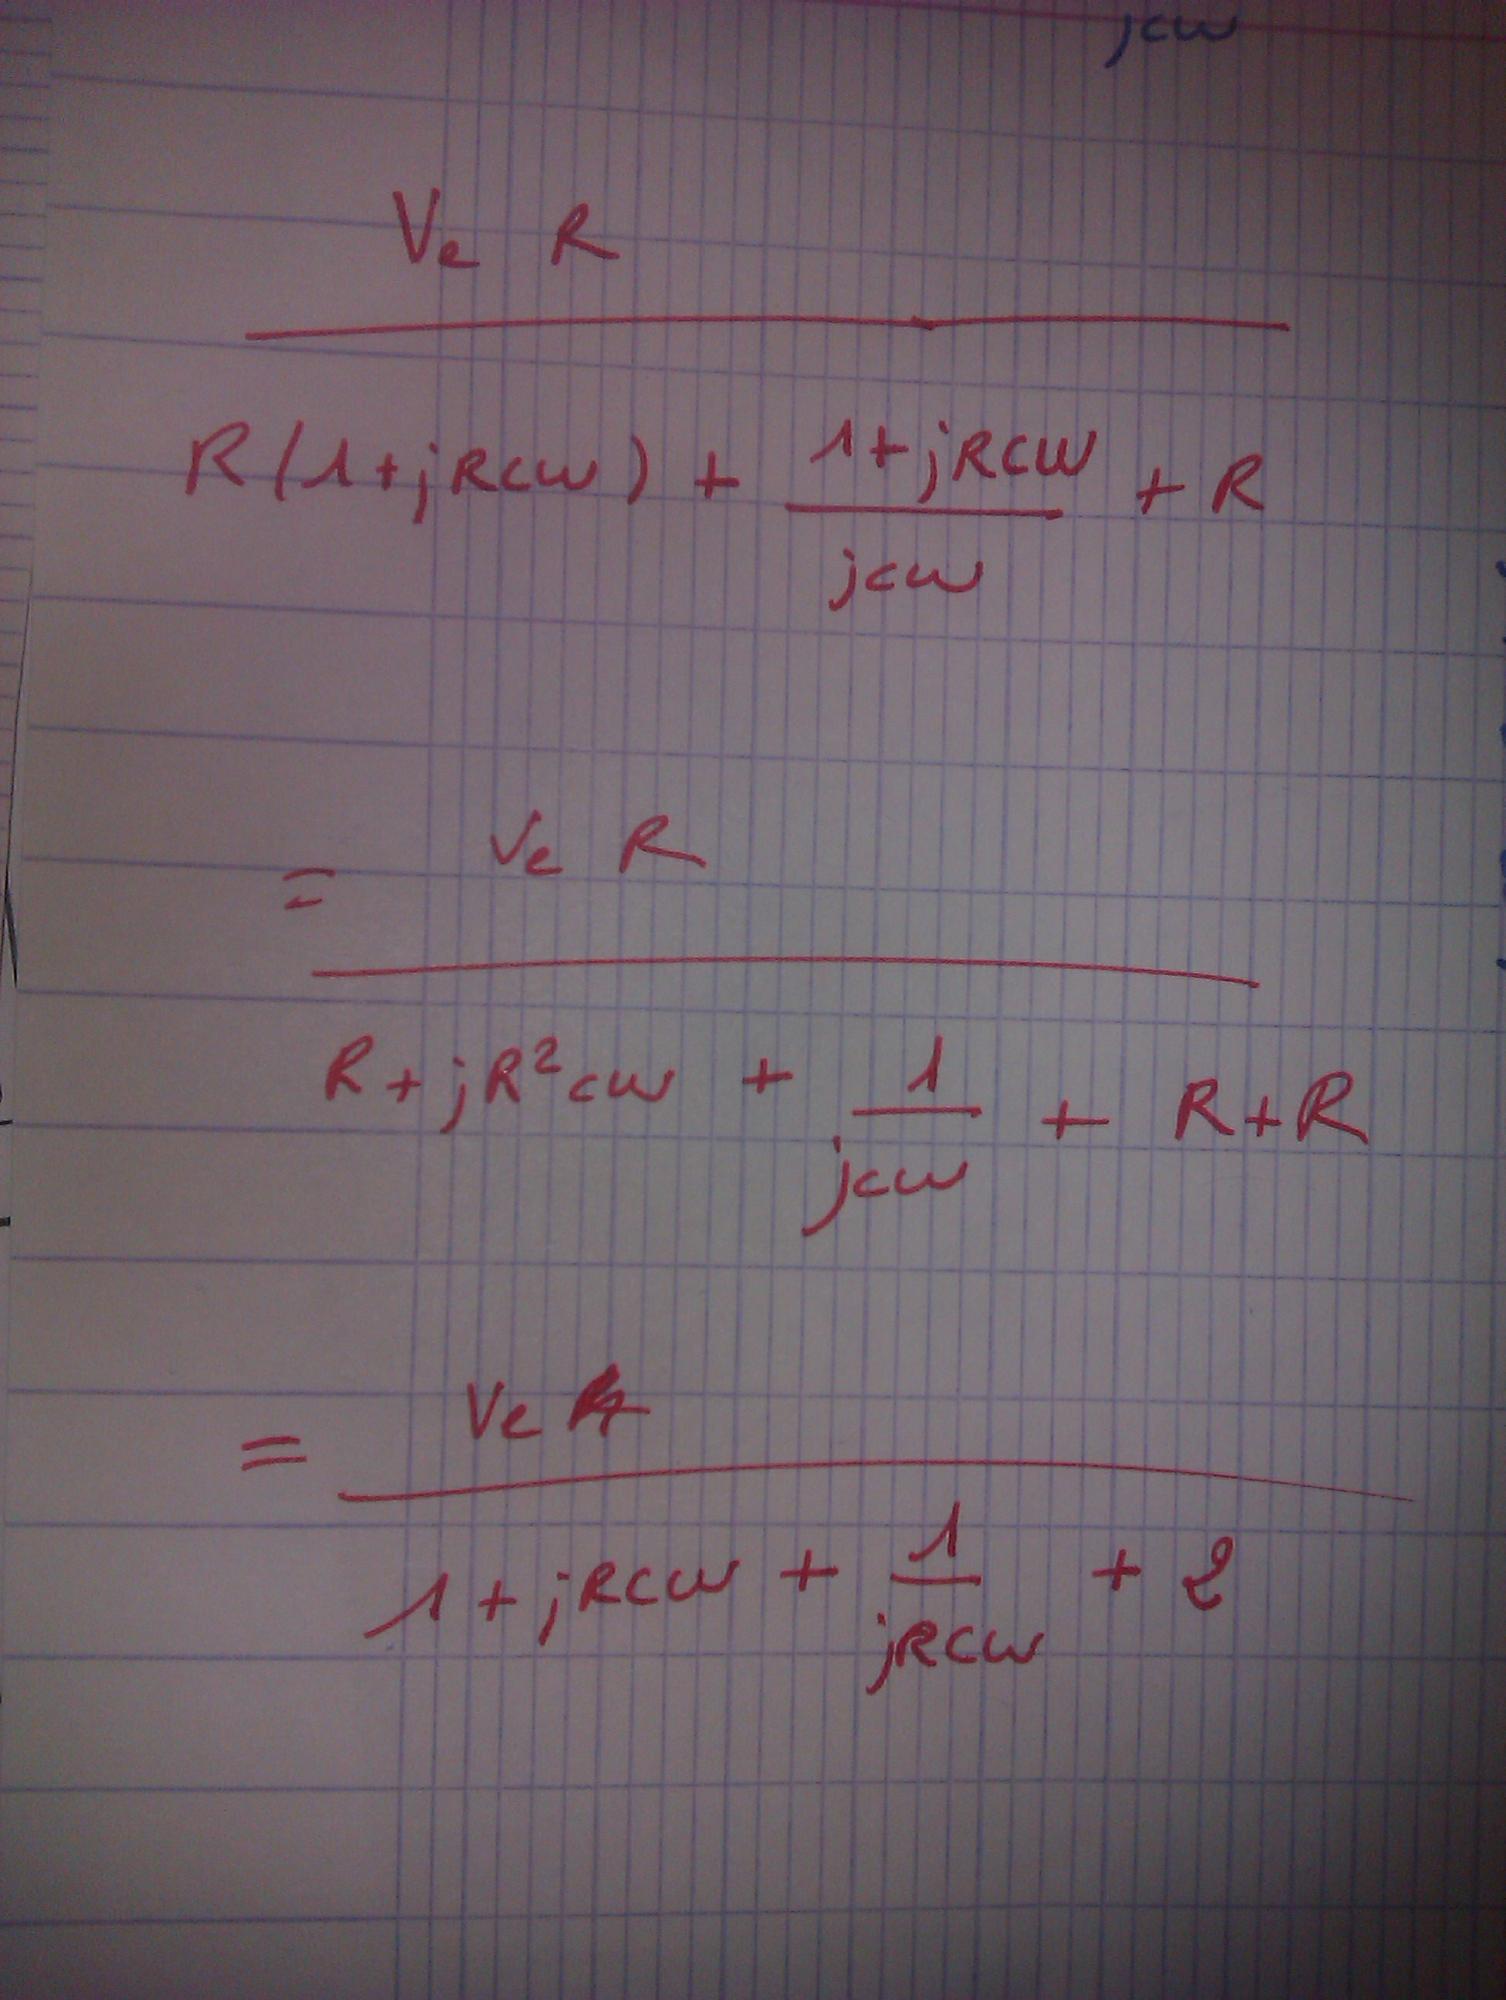 jcw
Ve R
R(1+jRcw) + 1+jRcw / jcw + R
= Ve R
R + jR²cw + 1 / jcw + R+R
= Ve
1 + jRcw + 1 / jRcw + 2